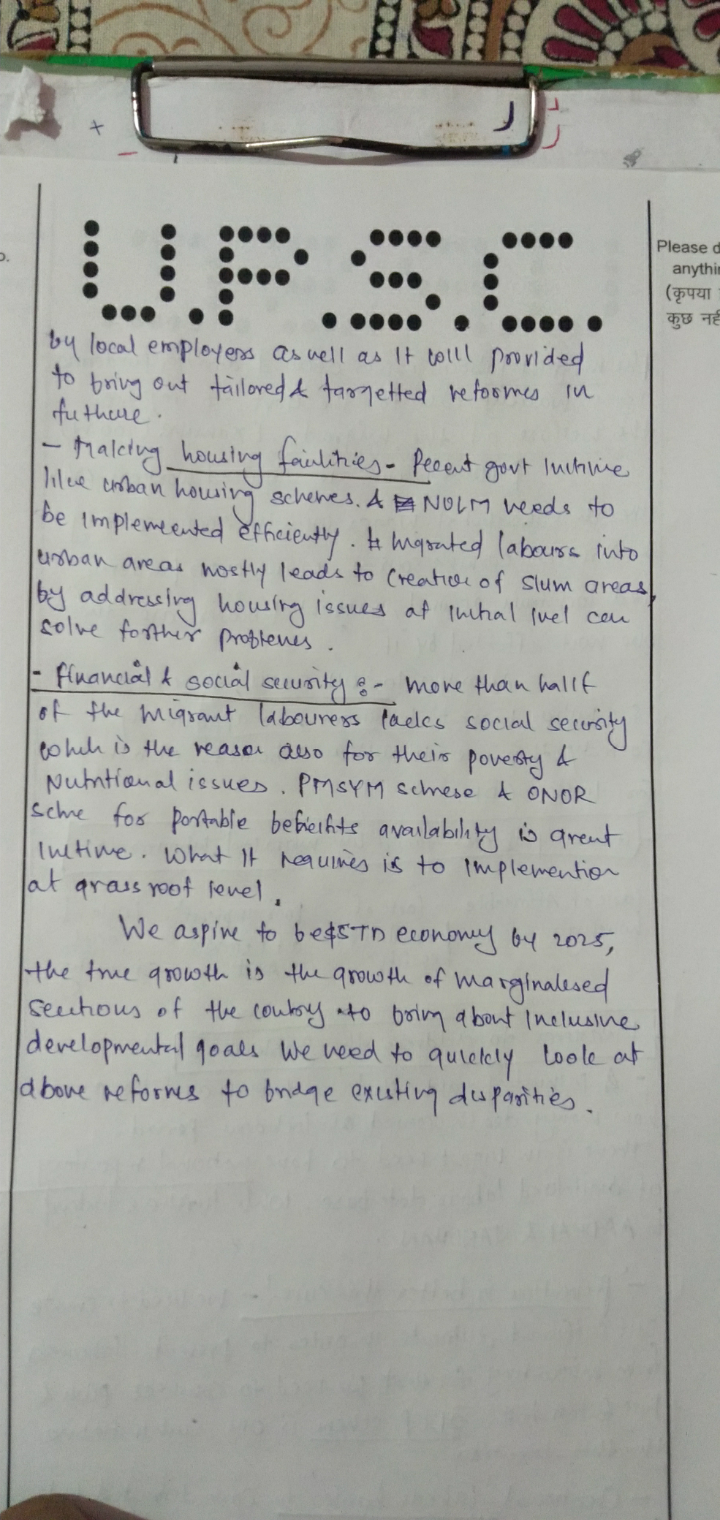 U.P.S.C.
Please d
anythin
(कृपया
कुछ नहीं
by local employers as well as it will provided
to bring out tailored & targetted reformes in
futhure.
- Making housing facilities - Recent govt
like urban housing schemes. & NULM needs to
be implemented efficiently. Migrated labours into
urban areas mostly leads to creation of slum areas,
by addressing housing issues at initial level can
solve forther problems.
- financial & social security :- more than hallf
of the migrant labourers lacks social security
which is the reason also for their poverty &
Nutritional issues. PMSYM scheme & ONOR
for portable availability is great
. What it requires is to implemention
at grass root level.
We aspire to be $5TD economy by 2025,
the true growth is the growth of marginalesed
sections of the to bring about inclusive
developmental goals we need to quickly look at
above reforms to bridge existing disparities.